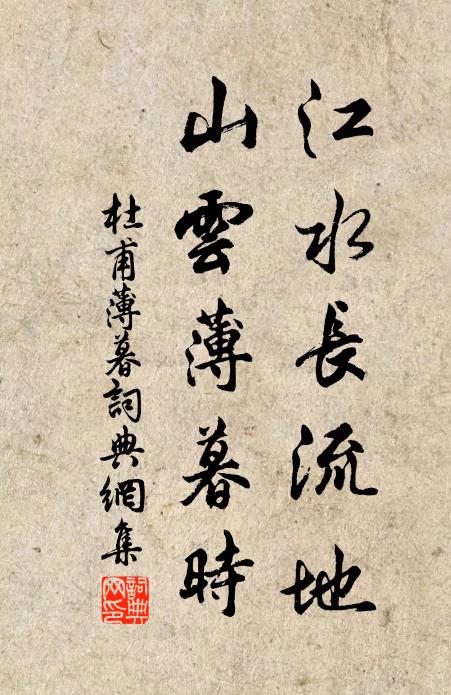 江水長流地
山雲薄暮時
杜甫薄暮詞典網集
詞典
网印